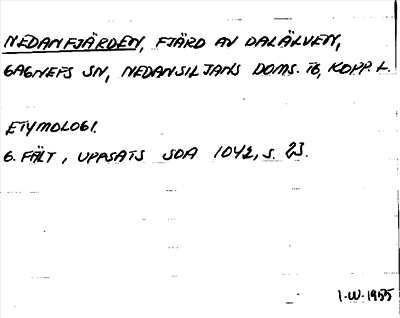 NEDANFJÄRDEN, FJÄRD AV DALÄLVEN,
GAGNEFS SN, NEDANSILJANS DOMS. TB, KOPP. L.
ETYMOLOGI.
G. FÄLT, UPPSATS SOA 1042, S. 23.
I.W. 1955